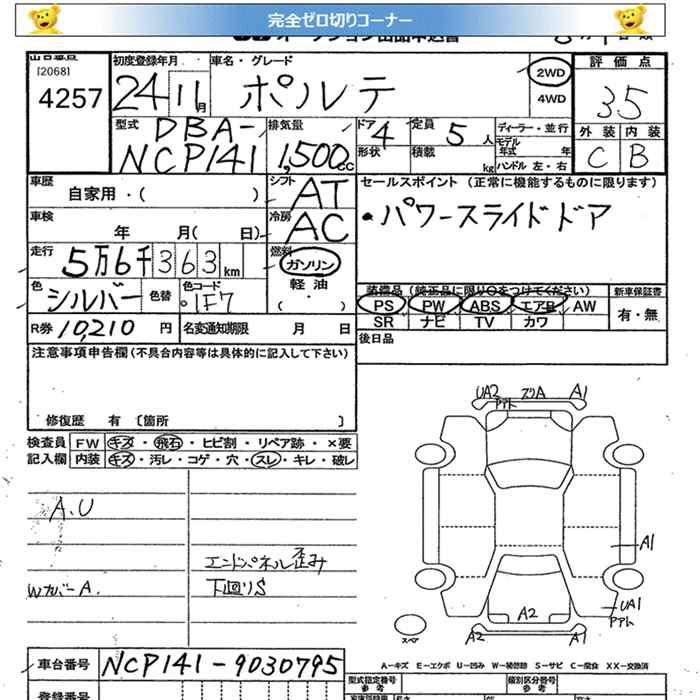 完全ゼロ切りコーナー
出品番号
[2068]
4257
初度登録年月
24 11月
車名・グレード
ポルテ
2WD
4WD
評価点
3.5
外装 内装
C B
型式
DBA-
NCP141
排気量
1,500cc
ドア 4
形状
定員 5人
積載 kg
ディーラー・並行
モデル年式 年
ハンドル 左・右
車歴
自家用・( )
シフト
AT
車検
年 月( 日)
冷房
AC
セールスポイント (正常に機能するものに限ります)
・パワースライドドア
走行
5万6千363km
燃料
ガソリン
軽油
・( )
色
シルバー
色替
色コード
1F7
R券 10,210 円
名変通知期限 月 日
装備品 (純正品に限り○をつけてください)
PS PW ABS エアB AW
SR ナビ TV カワ
新車保証書
有・無
後日品
注意事項申告欄(不具合内容等は具体的に記入して下さい)
修復歴 有 〔箇所 〕
検査員記入欄
FW キズ・飛石・ヒビ割・リペア跡・×要
内装 キズ・汚レ・コゲ・穴・スレ・キレ・破レ
A.U
エンドパネル歪み
Wカバー A.
下廻りS
UA2 ズリA A1
A1
UA1
A2
スペア
A2 A1
A-キズ E-エクボ U-凹み W-補修跡 S-サビ C-腐食 XX-交換済
車台番号
NCP141-9030795
登録番号
型式指定番号
参考
類別区分番号
参考